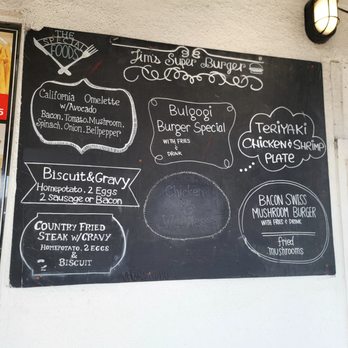 THE
SPECIAL
FOODS
Jim's Super Burger
California Omelette
w/Avocado
Bacon, Tomato, Mushroom,
Spinach, Onion, Bellpepper
Bulgogi
Burger Special
WITH FRIES
&
DRINK
TERIYAKI
CHICKEN & SHRIMP
PLATE
BISCUIT & GRAVY
Homepotato, 2 Eggs
2 Sausage or Bacon
Chicken
BACON SWISS
MUSHROOM BURGER
WITH FRIES & DRINK
fried
mushrooms
COUNTRY FRIED
STEAK W/GRAVY
HOMEPOTATO, 2 EGGS
&
BISCUIT